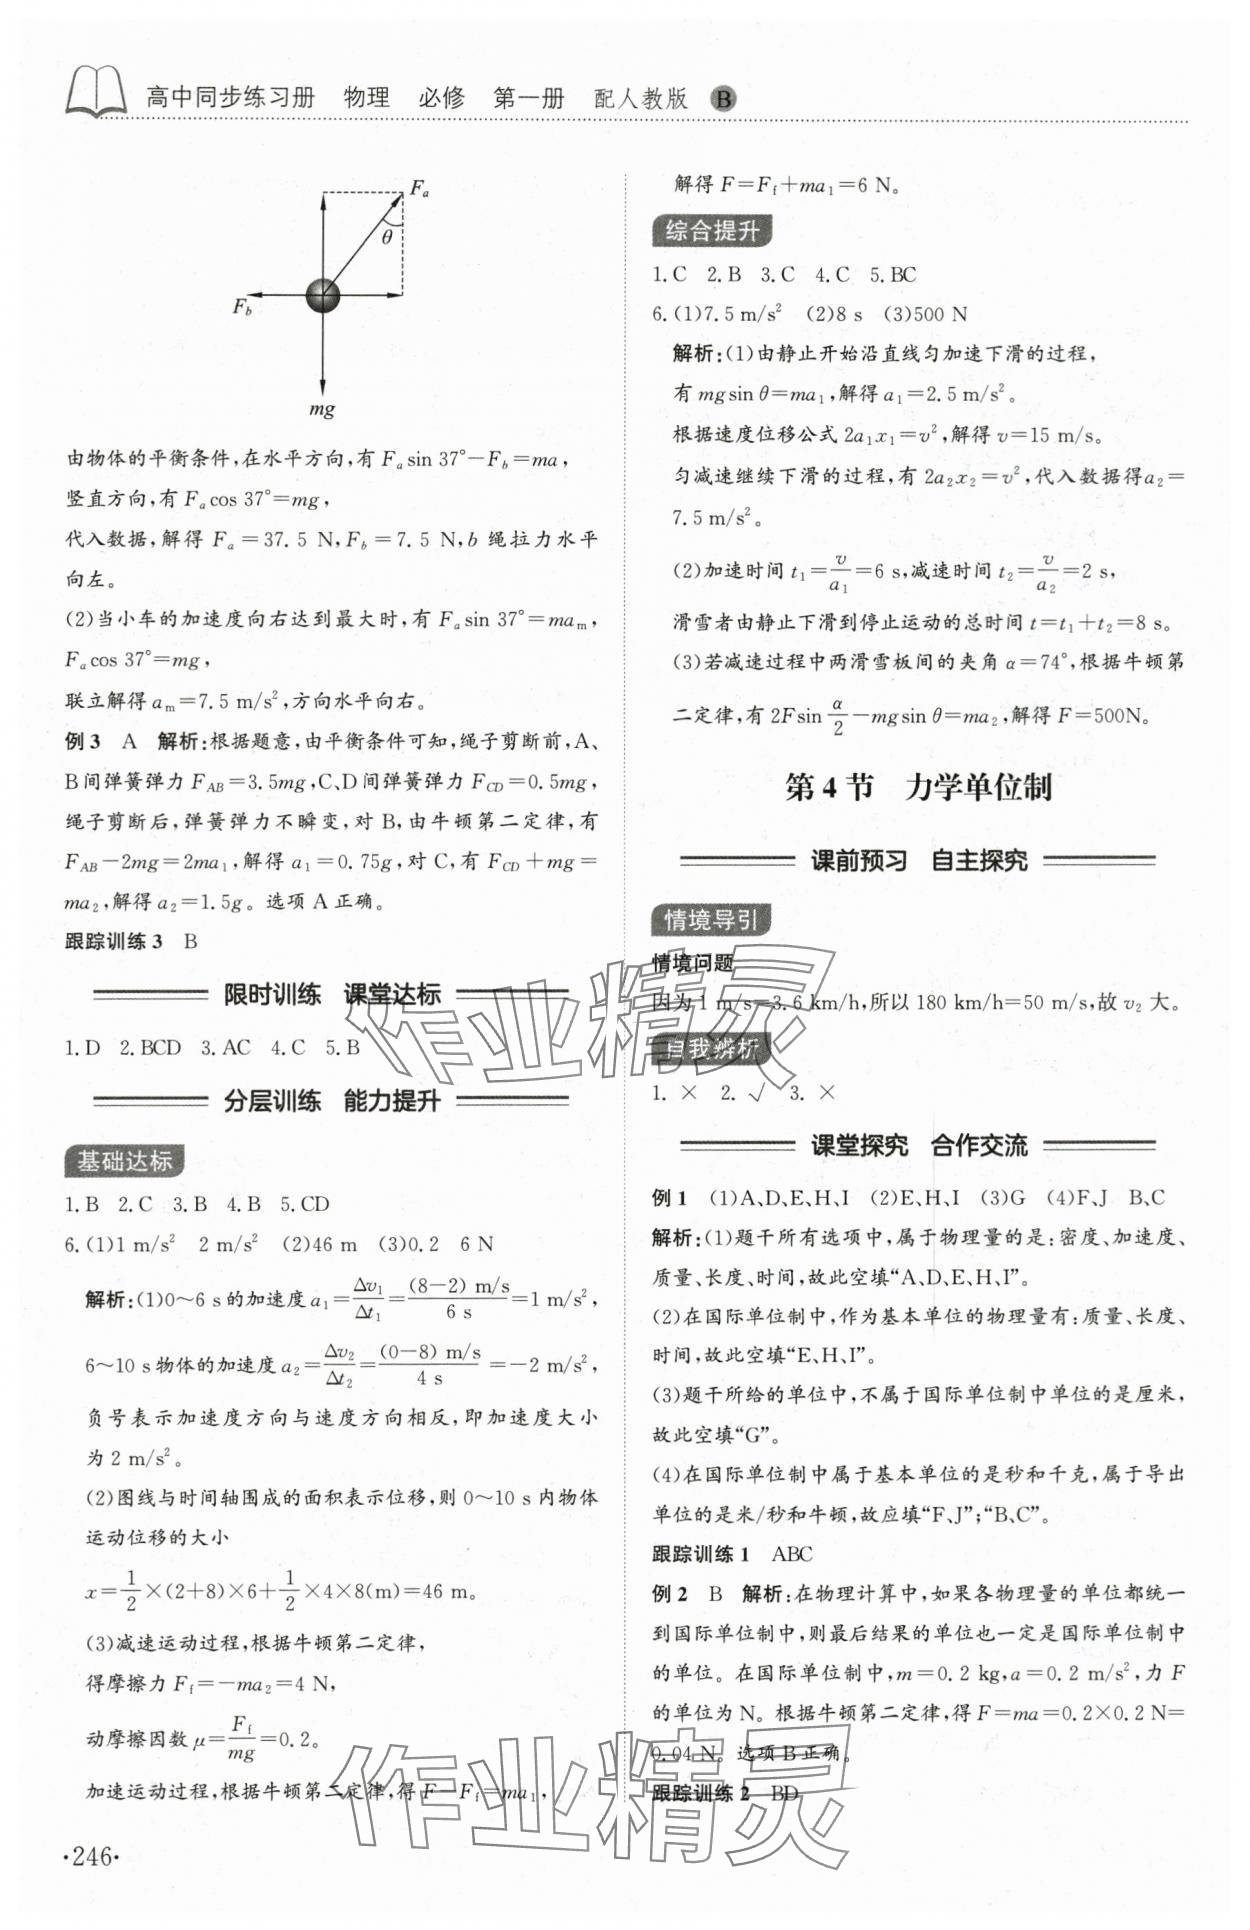 高中同步练习册 物理 必修 第一册 配人教版 B
F_a
θ
F_b
mg
由物体的平衡条件,在水平方向,有 F_a sin 37°−F_b=ma,
竖直方向,有 F_a cos 37°=mg,
代入数据,解得 F_a=37.5 N,F_b=7.5 N,b 绳拉力水平
向左。
(2)当小车的加速度向右达到最大时,有 F_a sin 37°=ma_m,
F_a cos 37°=mg,
联立解得 a_m=7.5 m/s²,方向水平向右。
例 3 A 解析:根据题意,由平衡条件可知,绳子剪断前,A、
B 间弹簧弹力 F_AB=3.5mg,C、D 间弹簧弹力 F_CD=0.5mg,
绳子剪断后,弹簧弹力不瞬变,对 B,由牛顿第二定律,有
F_AB−2mg=2ma₁,解得 a₁=0.75g,对 C,有 F_CD+mg=
ma₂,解得 a₂=1.5g。选项 A 正确。
跟踪训练 3 B
限时训练 课堂达标
1.D 2.BCD 3.AC 4.C 5.B
分层训练 能力提升
基础达标
1.B 2.C 3.B 4.B 5.CD
6.(1)1 m/s² 2 m/s² (2)46 m (3)0.2 6 N
解析:(1)0～6 s 的加速度 a₁=Δv₁/Δt₁=(8−2) m/s/6 s=1 m/s²,
6～10 s 物体的加速度 a₂=Δv₂/Δt₂=(0−8) m/s/4 s=−2 m/s²,
负号表示加速度方向与速度方向相反,即加速度大小
为 2 m/s²。
(2)图线与时间轴围成的面积表示位移,则 0～10 s 内物体
运动位移的大小
x=1/2×(2+8)×6+1/2×4×8(m)=46 m。
(3)减速运动过程,根据牛顿第二定律,
得摩擦力 F_f=−ma₂=4 N,
动摩擦因数 μ=F_f/mg=0.2。
加速运动过程,根据牛顿第二定律,得 F−F_f=ma₁,
·246·
解得 F=F_f+ma₁=6 N。
综合提升
1.C 2.B 3.C 4.C 5.BC
6.(1)7.5 m/s² (2)8 s (3)500 N
解析:(1)由静止开始沿直线匀加速下滑的过程,
有 mgsin θ=ma₁,解得 a₁=2.5 m/s²。
根据速度位移公式 2a₁x₁=v²,解得 v=15 m/s。
匀减速继续下滑的过程,有 2a₂x₂=v²,代入数据得 a₂=
7.5 m/s²。
(2)加速时间 t₁=v/a₁=6 s,减速时间 t₂=v/a₂=2 s,
滑雪者由静止下滑到停止运动的总时间 t=t₁+t₂=8 s。
(3)若减速过程中两滑雪板间的夹角 α=74°,根据牛顿第
二定律,有 2Fsin α/2−mgsin θ=ma₂,解得 F=500N。
第 4 节 力学单位制
课前预习 自主探究
情境导引
情境问题
因为 1 m/s=3.6 km/h,所以 180 km/h=50 m/s,故 v₂ 大。
自我辨析
1. × 2. √ 3. ×
课堂探究 合作交流
例 1 (1)A、D、E、H、I (2)E、H、I (3)G (4)F、J B、C
解析:(1)题干所有选项中,属于物理量的是:密度、加速度、
质量、长度、时间,故此空填“A、D、E、H、I”。
(2)在国际单位制中,作为基本单位的物理量有:质量、长度、
时间,故此空填“E、H、I”。
(3)题干所给的单位中,不属于国际单位制中单位的是厘米,
故此空填“G”。
(4)在国际单位制中属于基本单位的是秒和千克,属于导出
单位的是米/秒和牛顿,故应填“F、J”;“B、C”。
跟踪训练 1 ABC
例 2 B 解析:在物理计算中,如果各物理量的单位都统一
到国际单位制中,则最后结果的单位也一定是国际单位制中
的单位。在国际单位制中,m=0.2 kg,a=0.2 m/s²,力 F
的单位为 N。根据牛顿第二定律,得 F=ma=0.2×0.2 N=
0.04 N。选项 B 正确。
跟踪训练 2 BD
作业精灵
作业精灵